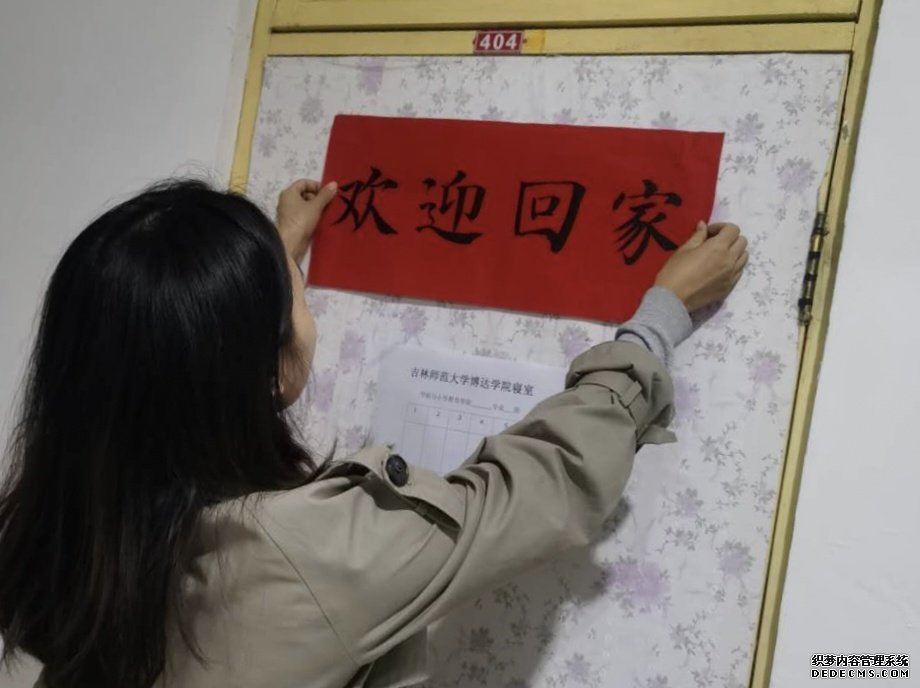 404
欢迎回家
吉林师范大学博达学院寝室
1 2 3 4
织梦内容管理系统
DEDECMS.COM